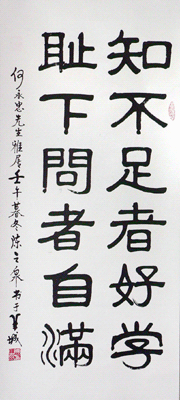 知不足者好学
耻下問者自滿
何永忠先生雅属壬午暮冬陈之泉书于羊城